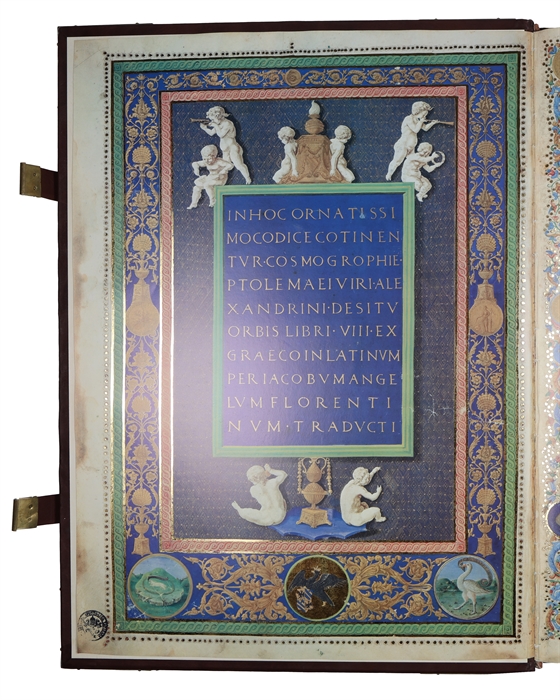 INHOC ORNATISSI
MOCODICE COTINEN
TVR·COSMOGROPHIE·
PTOLEMAEI VIRI·ALE
XANDRINI·DESITV
ORBIS LIBRI·VIII·EX
GRAECO IN LATINVM
PER IACOBVM ANGE
LVM FLORENTI
NVM·TRADVCTI